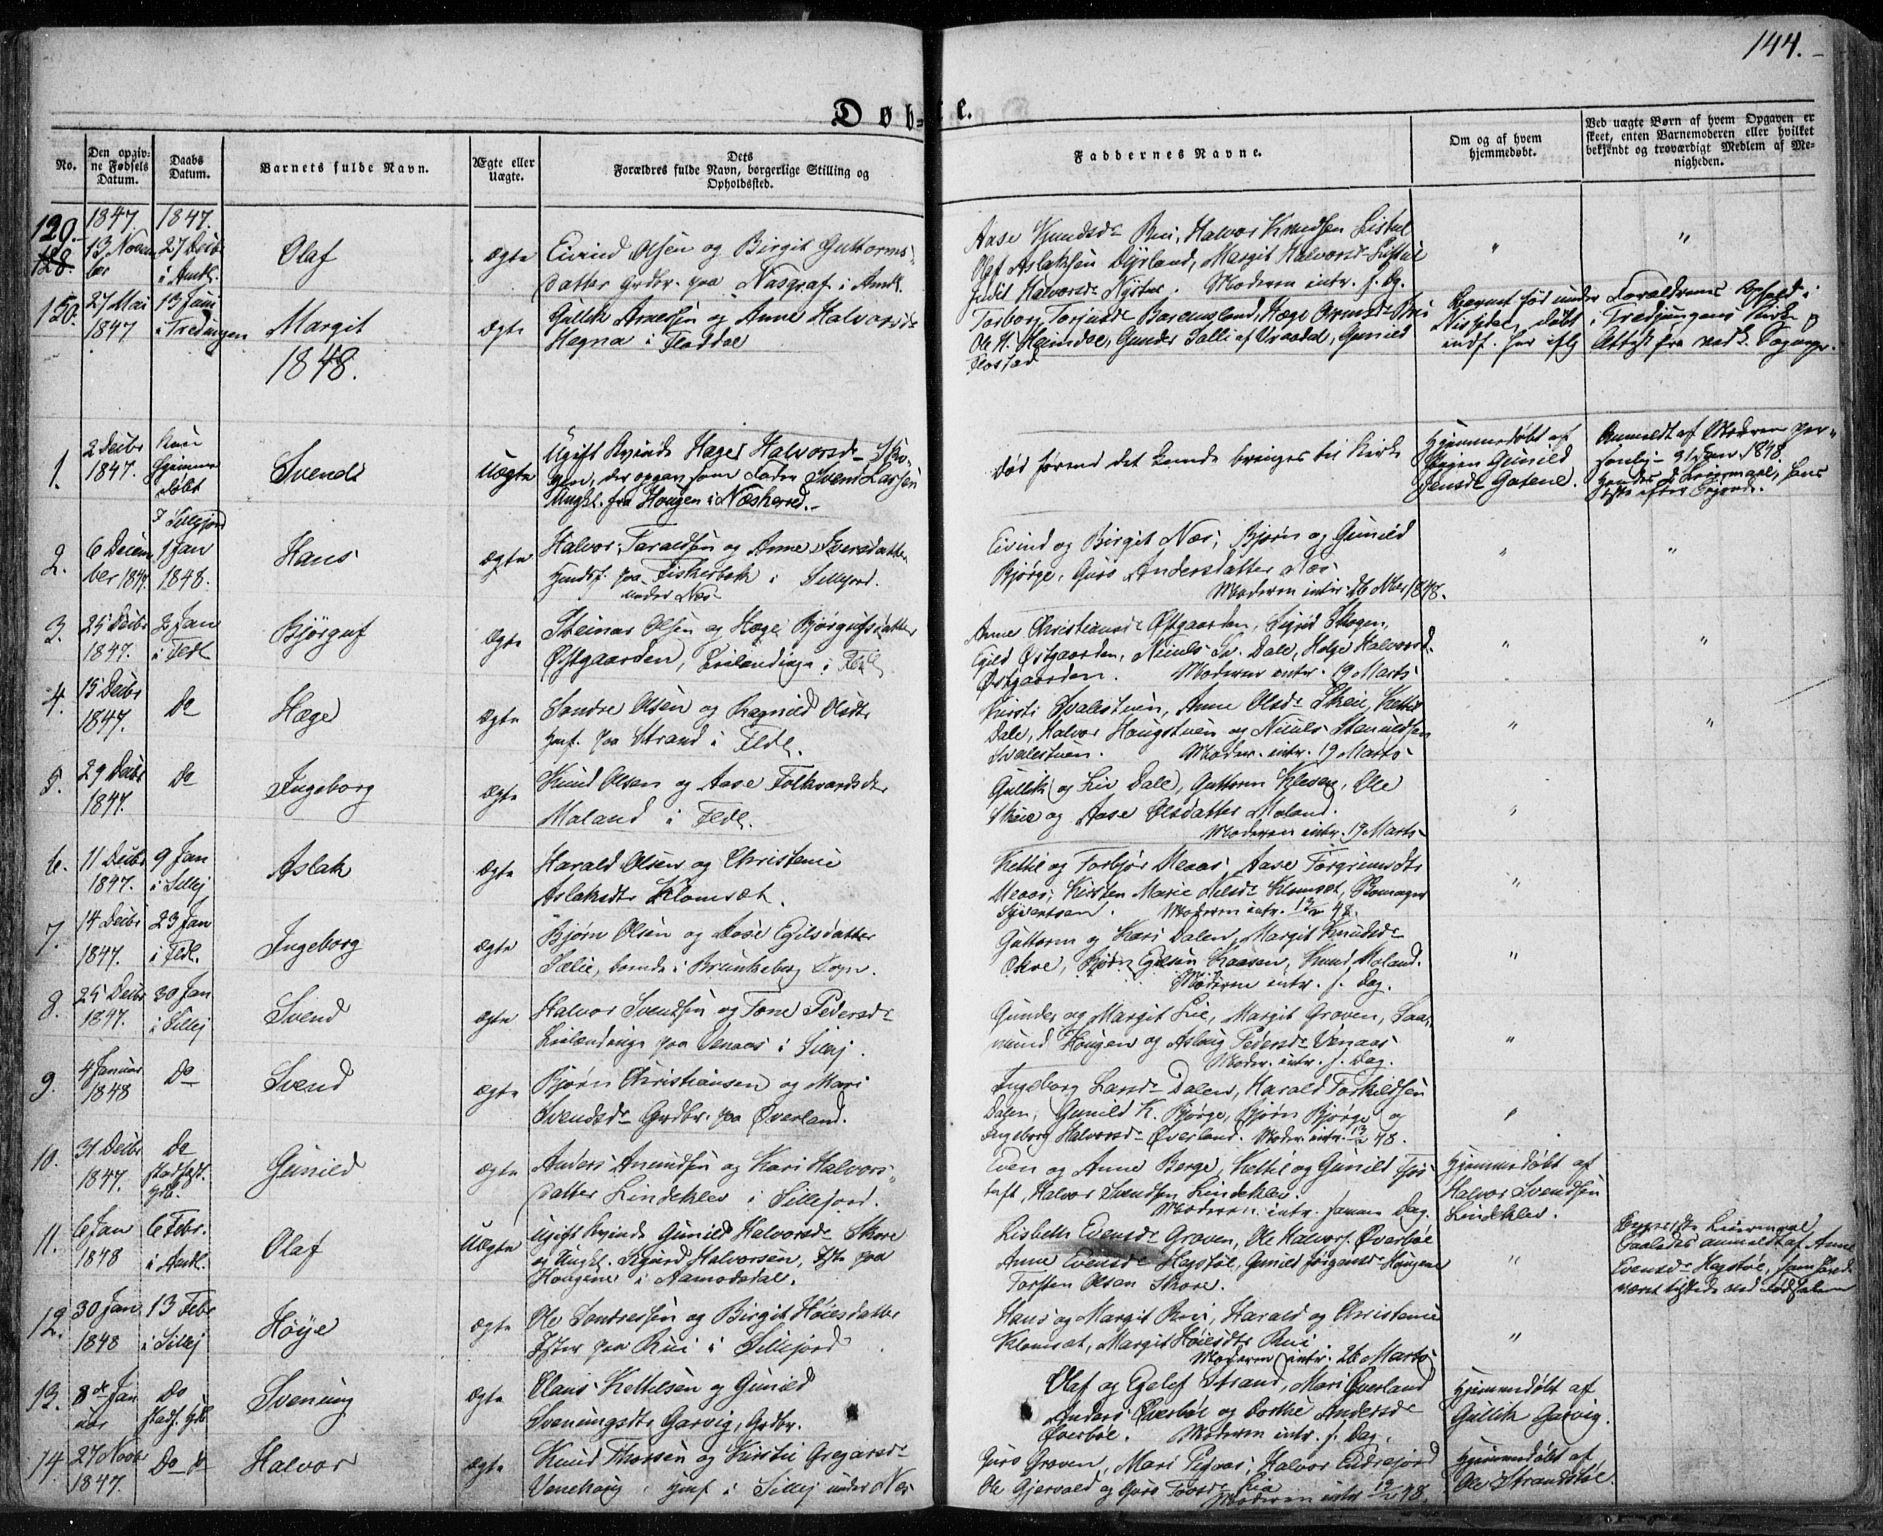 144.
Døbte.
No.
Den opgivne Fødsels Datum.
Daabs Datum.
Barnets fulde Navn.
Ægte eller Uægte.
Dets Forældres fulde Navn, borgerlige Stilling og Opholdssted.
Faddernes Navne.
Om og af hvem hjemmedøbt.
Ved uægte Børn af hvem Opgaven er skeet, enten Barnemoderen eller hvilket bekjendt og troværdigt Medlem af Menigheden.
1847 1847.
129.
128.
13 Novem
ber
27 Decbr
Olaf
ægte
Eivind Olsen og Birgit Guttorms-
datter Grdbr. paa Næsgraf i Amtl.
Halvor Knudsen Listul
Olaf Aslaksen Dyrland, Margit Halvorsd- Listul
Judit Halvorsd- Nystue. Moderen intr. s. Dg.
"
"
130.
27 Mai
1847
13 Juni
i Tredingen
Margit
ægte
Gullik Arnesen og Anne Halvorsd-
Hegna i Fladdal
Torborg Torjusd-
Ole H. Heimdal, Gunder Salli af Vraadal, Gunild
Flostad
Barnet fød under Forældrenes Ophold i
Nissedal, døbt i Tredjungens Kirke og
1848.
1.
2 Decbr
1847.
hjemme
døbt
Svend
Uægte
Ugift Kvinde Hæge Halvorsd-
der opgav som Fader Svend Larsen
Ungkl. fra Hougen i Næsherred.-
død førend det kunde bringes til Kirke
Hjemmedøbt af
Pigen Gunild
Jensd- Gatene.
Anmeldt af Moderen per-
sonlig 31 Jan. 1848.
2.
6 Decem
ber 1847.
i Sillejord
1 Jan
1848.
Hans
ægte
Halvor Taraldsen og Anne Sversdatter
Husmf. paa Fiskerbek i Sillejord.
under Næs
Eivind og Birgit Næs, Bjørn og Gunild
Bjørge, Guro Andersdatter Næs
Moderen intr. 26 Mar 1848.
"
"
3.
25 Decbr
1847.
2 Jan
i Fldl
Bjørguf
ægte
Steinar Olsen og Hæge Bjørgufsdatter
Østgaarden, Leilændinge i Fldl
Anne Christiansd- Østgaarden, Sigrid Skogen,
Egild Østgaarden, Niculs Sv. Dale, Helge Halvorsd.
Østgaarden. Moderen intr. 19 Marts
"
"
4.
15 Decbr
1847.
Do
Hæge
ægte
Sondre Olsen og Ragnild Olsdtr
Hmf. paa Strand i Fldl.
Kirsti Svalestuen, Anne Olsd- Skeie, Kettil
Dale, Halvor Haugstuen og Niculs Steinulfsen
Svalestuen. Moder. intr. 19 Marts
"
"
5.
29 Decbr
1847.
Do
Ingeborg
ægte
Knud Olsen og Aase Folkvardsdtr
Moland i Fldl.
Gullik og Liv Dale, Guttorm Kleven, Ole
Skeie og Aase Olsdatter Moland.
Moderen intr. 19 Marts
"
6.
11 Decbr
1847.
9 Jan
i Sillej
Aslak
ægte
Harald Olsen og Christenie
Aslaksdtr Klomsæt.
Kettil og Torbjør Meaas, Aase Torgrimsdtr
Meaas, Kirsten Marie Nilsd- Klomsæt, Skomager
Syvertsen. Moderen intr. 13/2 48.
"
7.
14 Decbr
1847.
23 Jan
i Fldl.
Ingeborg
ægte
Bjørn Olsen og Aase Egilsdatter
Sælie, boende i Brunkeberg Sogn.
Guttorm og Kari Dalen, Margit Knudsd-
Økre, Bjørn Egilsen Kaasen, Knud Moland.
Moderen intr. s. Dag.
"
8.
25 Decbr
1847.
30 Jan
i Sillej
Svend
ægte
Halvor Svendsen og Tone Pedersd-
Leilændinge paa Venaas i Sillej.
Gunder og Margit Lie, Margit Groven, Saa-
mund Hougen og Aslaug Pedersd- Venaas
Moder. intr. s. Dag.
"
9.
4 Januar
1848
Do
Svend
ægte
Bjørn Christiansen og Mari
Svendsd- Grdbr. paa Øverland.
Ingeborg Larsd- Dalen, Harald Torkildsen
Dalen, Gunild K. Bjørge, Bjørn Bjørge og
Ingeborg Halvorsd- Øverland. Moder. intr. 13/2 48.
"
10.
31 Decbr
1847.
Do
stadfæst.
Hjdb.
Gunild
ægte
Anders Amundsen og Kari Halvors-
datter Lindeklev i Sillejord.
Even og Anne Berge, Kettil og Gunild
Halvor Svendsen Lindeklev.
Moderen intr. samme Dag.
Hjemmedøbt af
Halvor Svendsen
Lindeklev.
11.
6 Jan
1848
6 Febr.
i Amtl.
Olaf
Uægte
Ugift Kvinde Gunild Halvorsd- Skore
og Ungkl. Sigurd Halvorsen,
Hougene i Aamodsdal.
Lisbeth Evensd- Groven, Ole Halvors. Øverbøe
Anne Evensd- Hegstøl, Gunild Jørgensd- Hougene
Torsten Olsen Skore.
"
anmeldt af Anne
Evensd- Hegstøl, som havde
været tilstede ved Fødselen
12.
30 Jan
1848
13 Febr
i Sillej
Høye
ægte
Ole Sondresen og Birgit Høiesdatter
paa Rui i Sillejord
Hans og Margit Rui, Harald og Christenie
Klomsæt, Margit Høiesdtr Rui.
Moderen intr. 26 Marts
"
13.
8de Jan
uar
Do
stadf. Hjdb
Svenung
ægte
Claus Kettilsen og Gunild
Svenungsdtr Garvig, Grdbr.
Olaf og Egelef Strand, Mari Øverland
Anders Øverbøe og Dorthe Andersd-
Øverbøe. Moderen intr. s. Dag.
Hjemmedøbt af
Gullik Garvig.
14.
27 Novbr
1847.
Do do
Halvor
ægte
Knud Thorsen og Kirstie Gregarsd-
Venehaug, Hmf i Sillej under Næs
Guro Groven, Mari Halvor Eudrejord
Ole Gjersvold og Guro Torsd- Lia
Moderen intr 19/2 48.
Hjemmedøbt af
Ole Strandstøl.